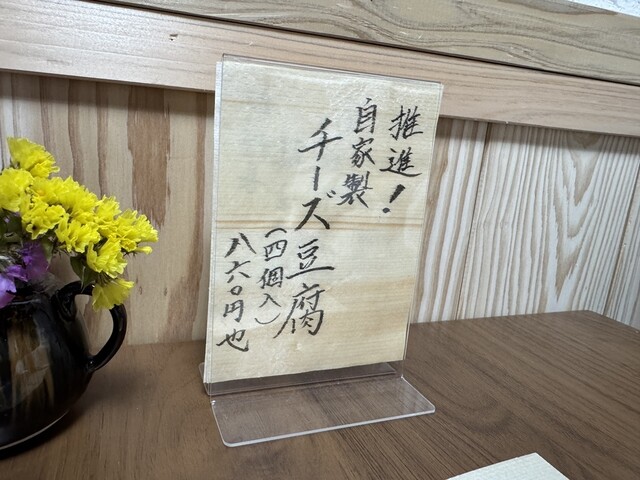 推進！
自家製
チーズ豆腐
（四個入）
八六〇円也